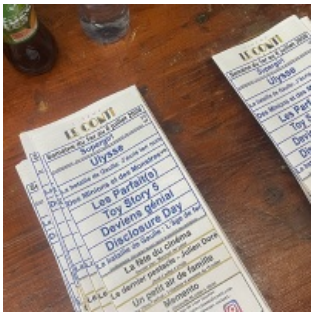 LE CONTI
Semaine du 1er au 6 juillet 2026
Supergirl
Ulysse
La bataille de Gaulle: J'écris ton nom
Des Minions et des Monstres
Les Parfait(s)
Toy Story 5
Deviens génial
Disclosure Day
La bataille de Gaulle: L'âge de fer
La fête du cinéma
Le dernier pestacle - Julien Doré
Un petit air de famille
Memento
LE CONTI
Semaine du 1er au
Supergirl
Ulysse
La bataille de Gaulle: J'é
Des Minions et des M
Les Parf
Toy S
Devien
Disclo